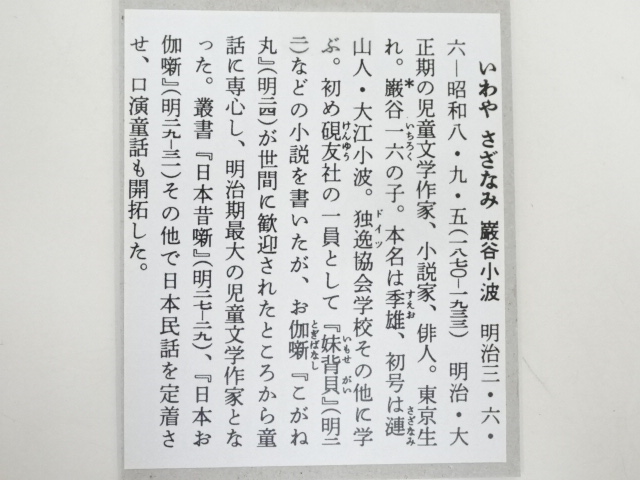 いわや さざなみ 巌谷小波 明治三・六・
六―昭和八・九・五(一八七〇―一九三三) 明治・大
正期の児童文学作家、小説家、俳人。東京生
れ。*巌谷一六の子。本名は季雄、初号は漣
山人・大江小波。独逸協会学校その他に学
ぶ。初め硯友社の一員として『妹背貝』(明二
二)などの小説を書いたが、お伽噺『こがね
丸』(明二四)が世間に歓迎されたところから童
話に専心し、明治期最大の児童文学作家とな
った。叢書『日本昔噺』(明二七―二九)、『日本お
伽噺』(明二九―三一)その他で日本民話を定着さ
せ、口演童話も開拓した。